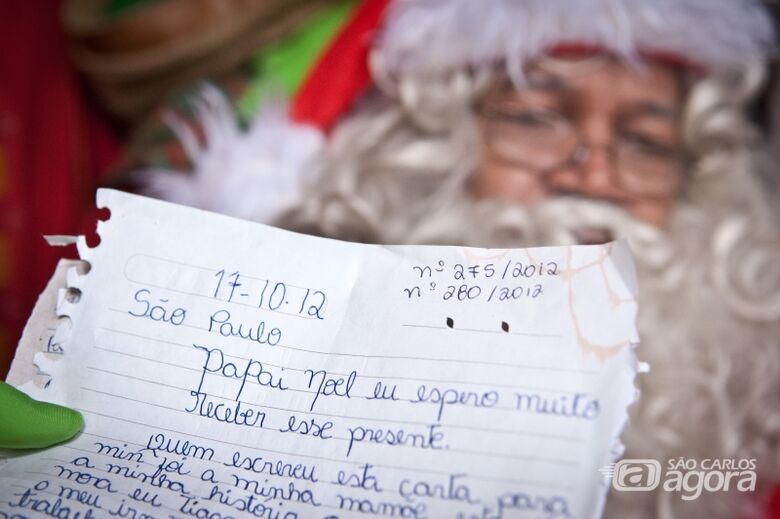 nº 275/2012
nº 280/2012
17-10-12
São Paulo
Papai Noel eu espero muito
receber esse presente.
Quem escreveu esta carta para
min foi a minha mamãe
a minha história
mora eu Tiago
o meu irm
trabal
SÃO CARLOS
agora